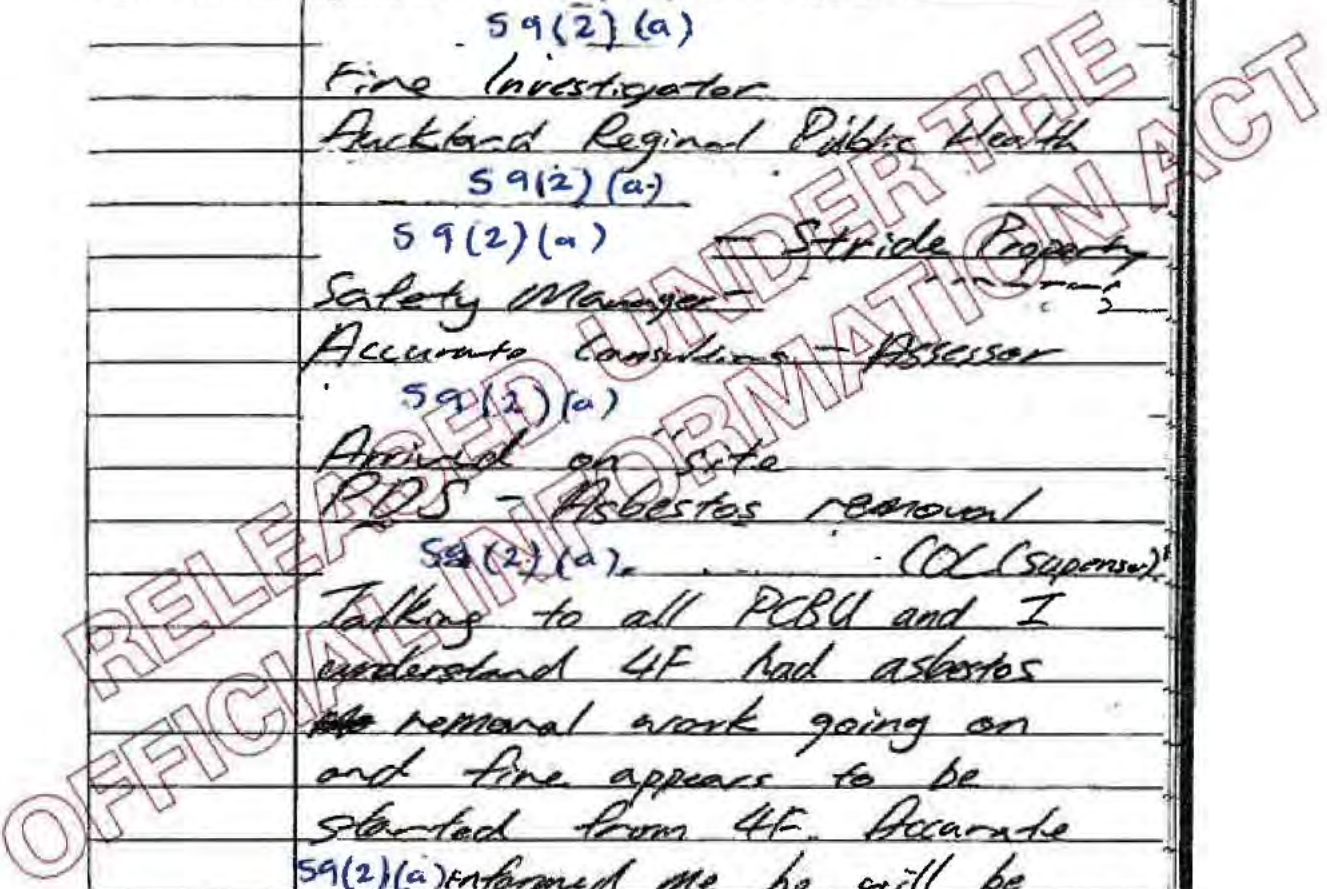 S9(2)(a)
Fire Investigator
Auckland Reginal Public Health
S9(2)(a)
S9(2)(a) - Stride Property
Safety Manager -
Accurate Consulting - Assessor
S9(2)(a)
Arrived on site
PDS - Asbestos removal
S9(2)(a) COC (supervisor)
Talking to all PCBU and I
understand 4F had asbestos
removal work going on
and fire appears to be
started from 4F. Accurate
S9(2)(a) informed me he will be
RELEASED UNDER THE
OFFICIAL INFORMATION ACT